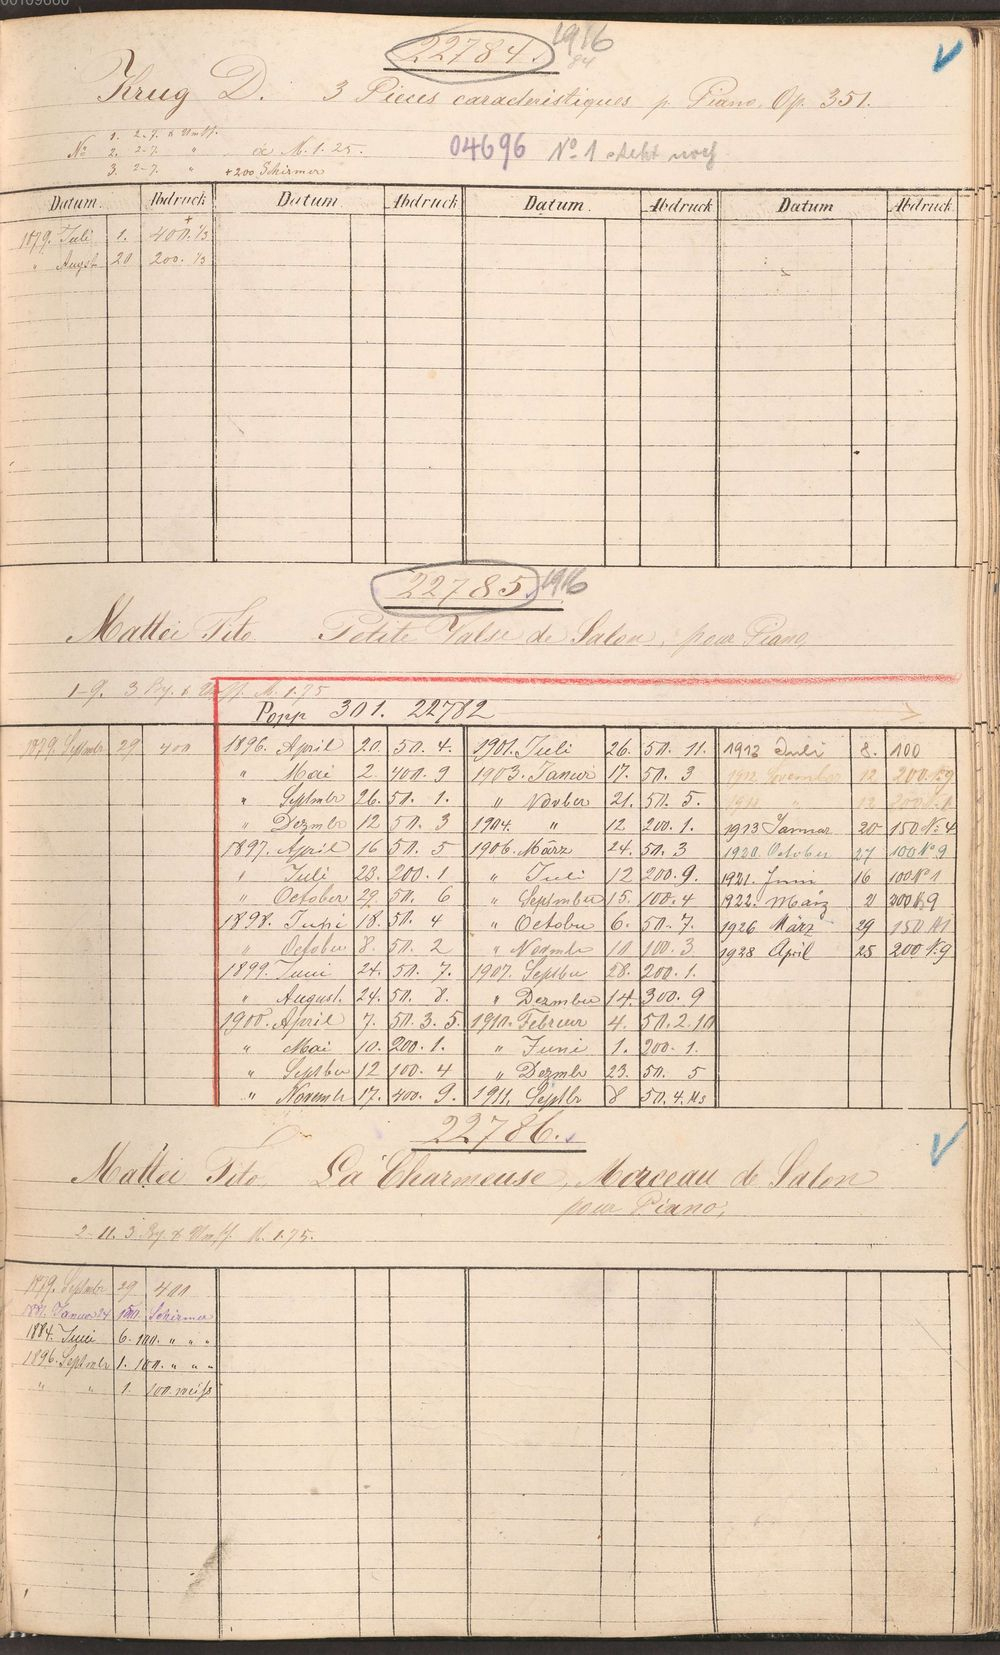 22784. 1916
84
Krug D. 3 Pieces caracteristiques p. Piano, Op. 351.
1. 2-7. & Umschl.
No 2. 2-7. " à M. 1.25. 04696 No 1 steht noch
3. 2-7. " +200 Schirmer
Datum. Abdruck Datum. Abdruck Datum. Abdruck Datum Abdruck
1879. Juli 1. 400. 1/3
" Augst 20 200. 1/3
22785. 1916
Mattei Tito Petite Valse de Salon, pour Piano,
1-9. 3 M. 1.75
Popp 301. 22782
1879. Septmbr 29 400 1896. April 20. 50. 4. 1901. Juli 26. 50. 11. 1912 Juli 8. 100
" Mai 2. 400. 9 1903. Januar 17. 50. 3 1912. November 12 200. No 9
" Septmbr 26. 50. 1. " Novber 21. 50. 5. " 12 200 N. 1
" Dezmbr 12 50. 3 1904. " 12 200. 1. 1913 Januar 20 150 No 4
1897. April 16 50. 5 1906. März 24. 50. 3 1920. October 27 100 No 9
" Juli 23. 200. 1 " Juli 12 200. 9. 1921. Juni 16 100 No 1
" October 29. 50. 6 " September 15. 100. 4 1922. März 2 200 N. 9
1898. Juni 18. 50. 4 " October 6. 50. 7. 1926 März 29 150 N 1
" October 8. 50. 2 " Novmbr 10 100. 3 1928 April 25 200 N. 9
1899. Juni 24. 50. 7. 1907. Septbr 28. 200. 1.
" August. 24. 50. 8. " Dezember 14. 300. 9
1900. April 7. 50. 3. 5. 1910. Februar 4. 50. 2. 10
" Mai 10. 200. 1. " Juni 1. 200. 1.
" Septber 12 100. 4 " Dezmbr 23. 50. 5
" Novembr 17. 400. 9. 1911. Septbr 8 50. 4.
22786.
Mattei Tito, La Charmeuse, Morceau de Salon
pour Piano,
2-11. 3 & Umschl. M. 1.75.
1879. Septmbr 29 400
1881. Januar 24 150. Schirmer
1884. Juni 6. 100. " " "
1896. Septmbr 1. 100. " " "
" " 1. 100. weiss